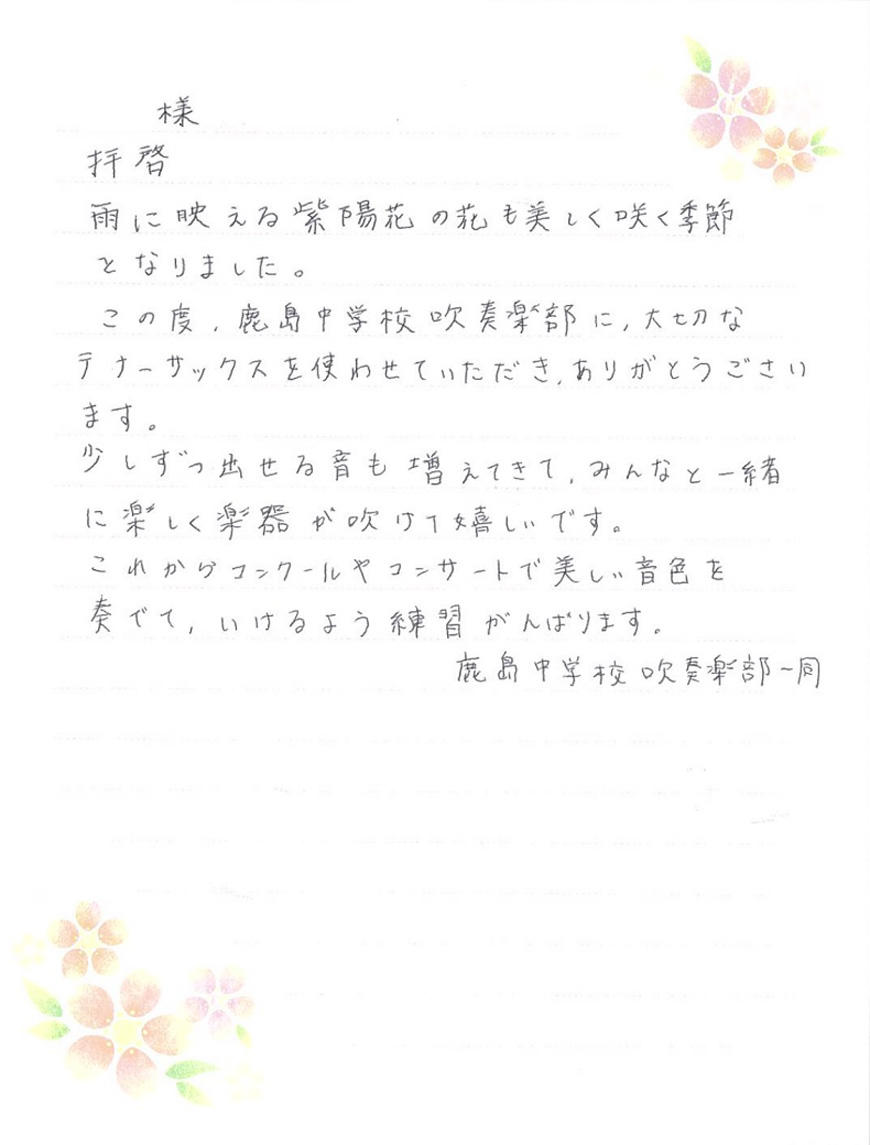 様
拝啓
雨に映える紫陽花の花も美しく咲く季節
となりました。
この度、鹿島中学校吹奏楽部に、大切な
テナーサックスを使わせていただき、ありがとうござい
ます。
少しずつ出せる音も増えてきて、みんなと一緒
に楽しく楽器が吹けて嬉しいです。
これからコンクールやコンサートで美しい音色を
奏でて、いけるよう練習がんばります。
鹿島中学校吹奏楽部一同